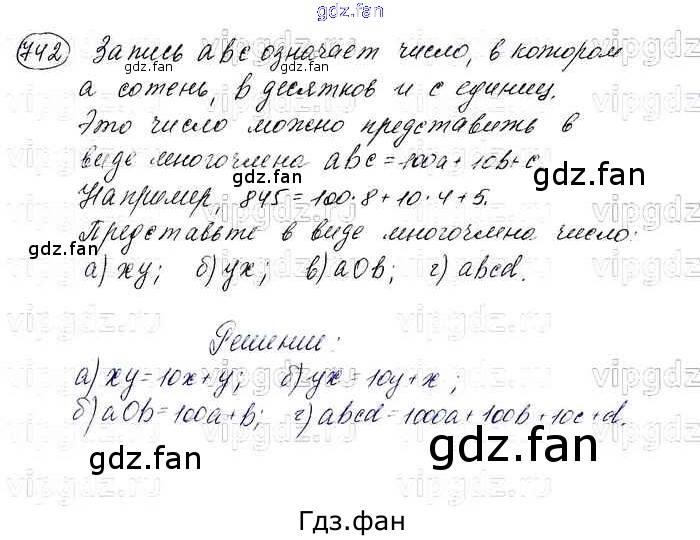 gdz.fan
742 Запись abc означает число, в котором
a сотень, b десятков и c единиц.
Это число можно представить в
виде многочлена abc = 100a + 10b + c
Например, 845 = 100·8 + 10·4 + 5.
Представьте в виде многочлена число:
а) xy; б) yx; в) a0b; г) abcd.
Решение:
а) xy = 10x + y; б) yx = 10y + x;
б) a0b = 100a + b; г) abcd = 1000a + 100b + 10c + d.
gdz.fan
gdz.fan
Гдз.фан